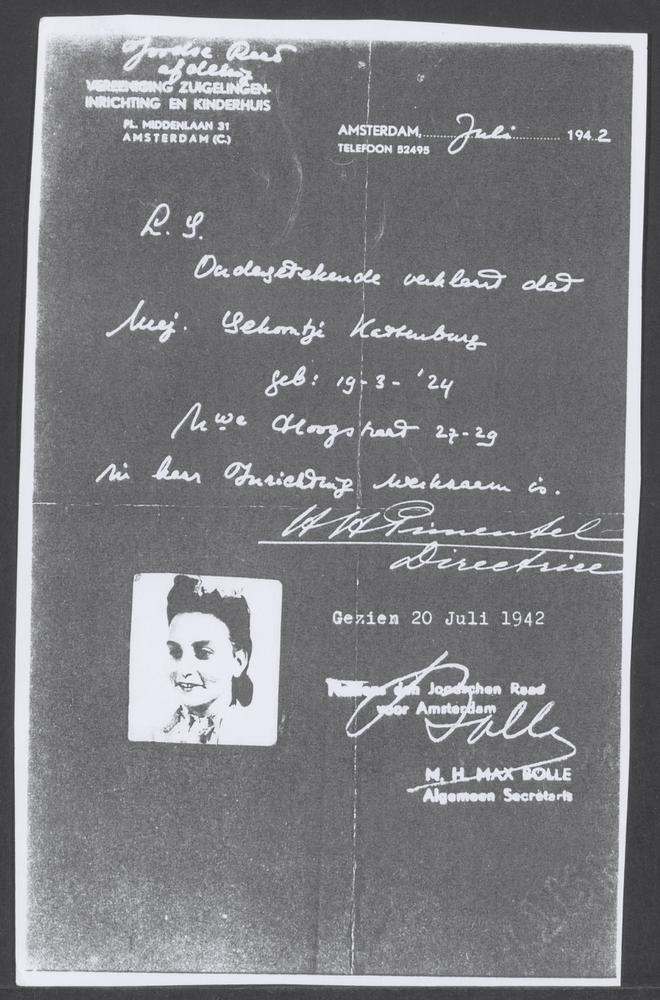 Joodse Raad
afdeling
VEREENIGING ZUIGELINGEN-
INRICHTING EN KINDERHUIS
PL. MIDDENLAAN 31
AMSTERDAM (C.)
AMSTERDAM, Juli 1942
TELEFOON 52495
L. S.
Ondergetekende verklaart dat
Mej. Schoontje Kattenburg
geb: 19-3-'24
Nwe Hoogstraat 27-29
in haar Inrichting werkzaam is.
H H Pimentel
Directrice
Gezien 20 Juli 1942
Namens den Joodschen Raad
voor Amsterdam
Bolle
M. H. MAX BOLLE
Algemeen Secretaris